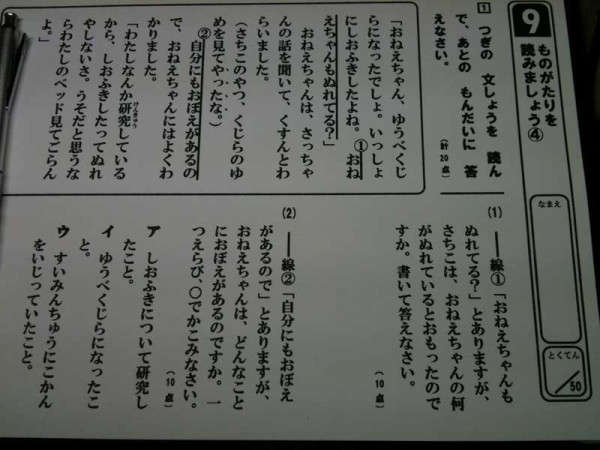 9
ものがたりを
読みましょう④
なまえ
とくてん
50
1 つぎの 文しょうを 読ん
で、あとの もんだいに 答
えなさい。
(計20点)
「おねえちゃん、ゆうべくじ
らになったでしょ。いっしょ
にしおふきしたよね。①おね
えちゃんもぬれてる?」
おねえちゃんは、さっちゃ
んの話を聞いて、くすんとわ
らいました。
(さちこのやつ、くじらのゆ
めを見てやったな。)
②自分にもおぼえがあるの
で、おねえちゃんにはよくわ
かりました。
「わたしなんか研究している
けんきゅう
から、しおふきしたってぬれ
やしないさ。うそだと思うな
らわたしのベッド見てごらん
よ。」
(1) ――線①「おねえちゃんも
ぬれてる?」とありますが、
さちこは、おねえちゃんの何
がぬれているとおもったので
すか。書いて答えなさい。
(10点)
(2) ――線②「自分にもおぼえ
があるので」とありますが、
おねえちゃんは、どんなこと
におぼえがあるのですか。一
つえらび、○でかこみなさい。
(10点)
ア しおふきについて研究し
たこと。
イ ゆうべくじらになったこ
と。
ウ すいみんちゅうにこかん
をいじっていたこと。